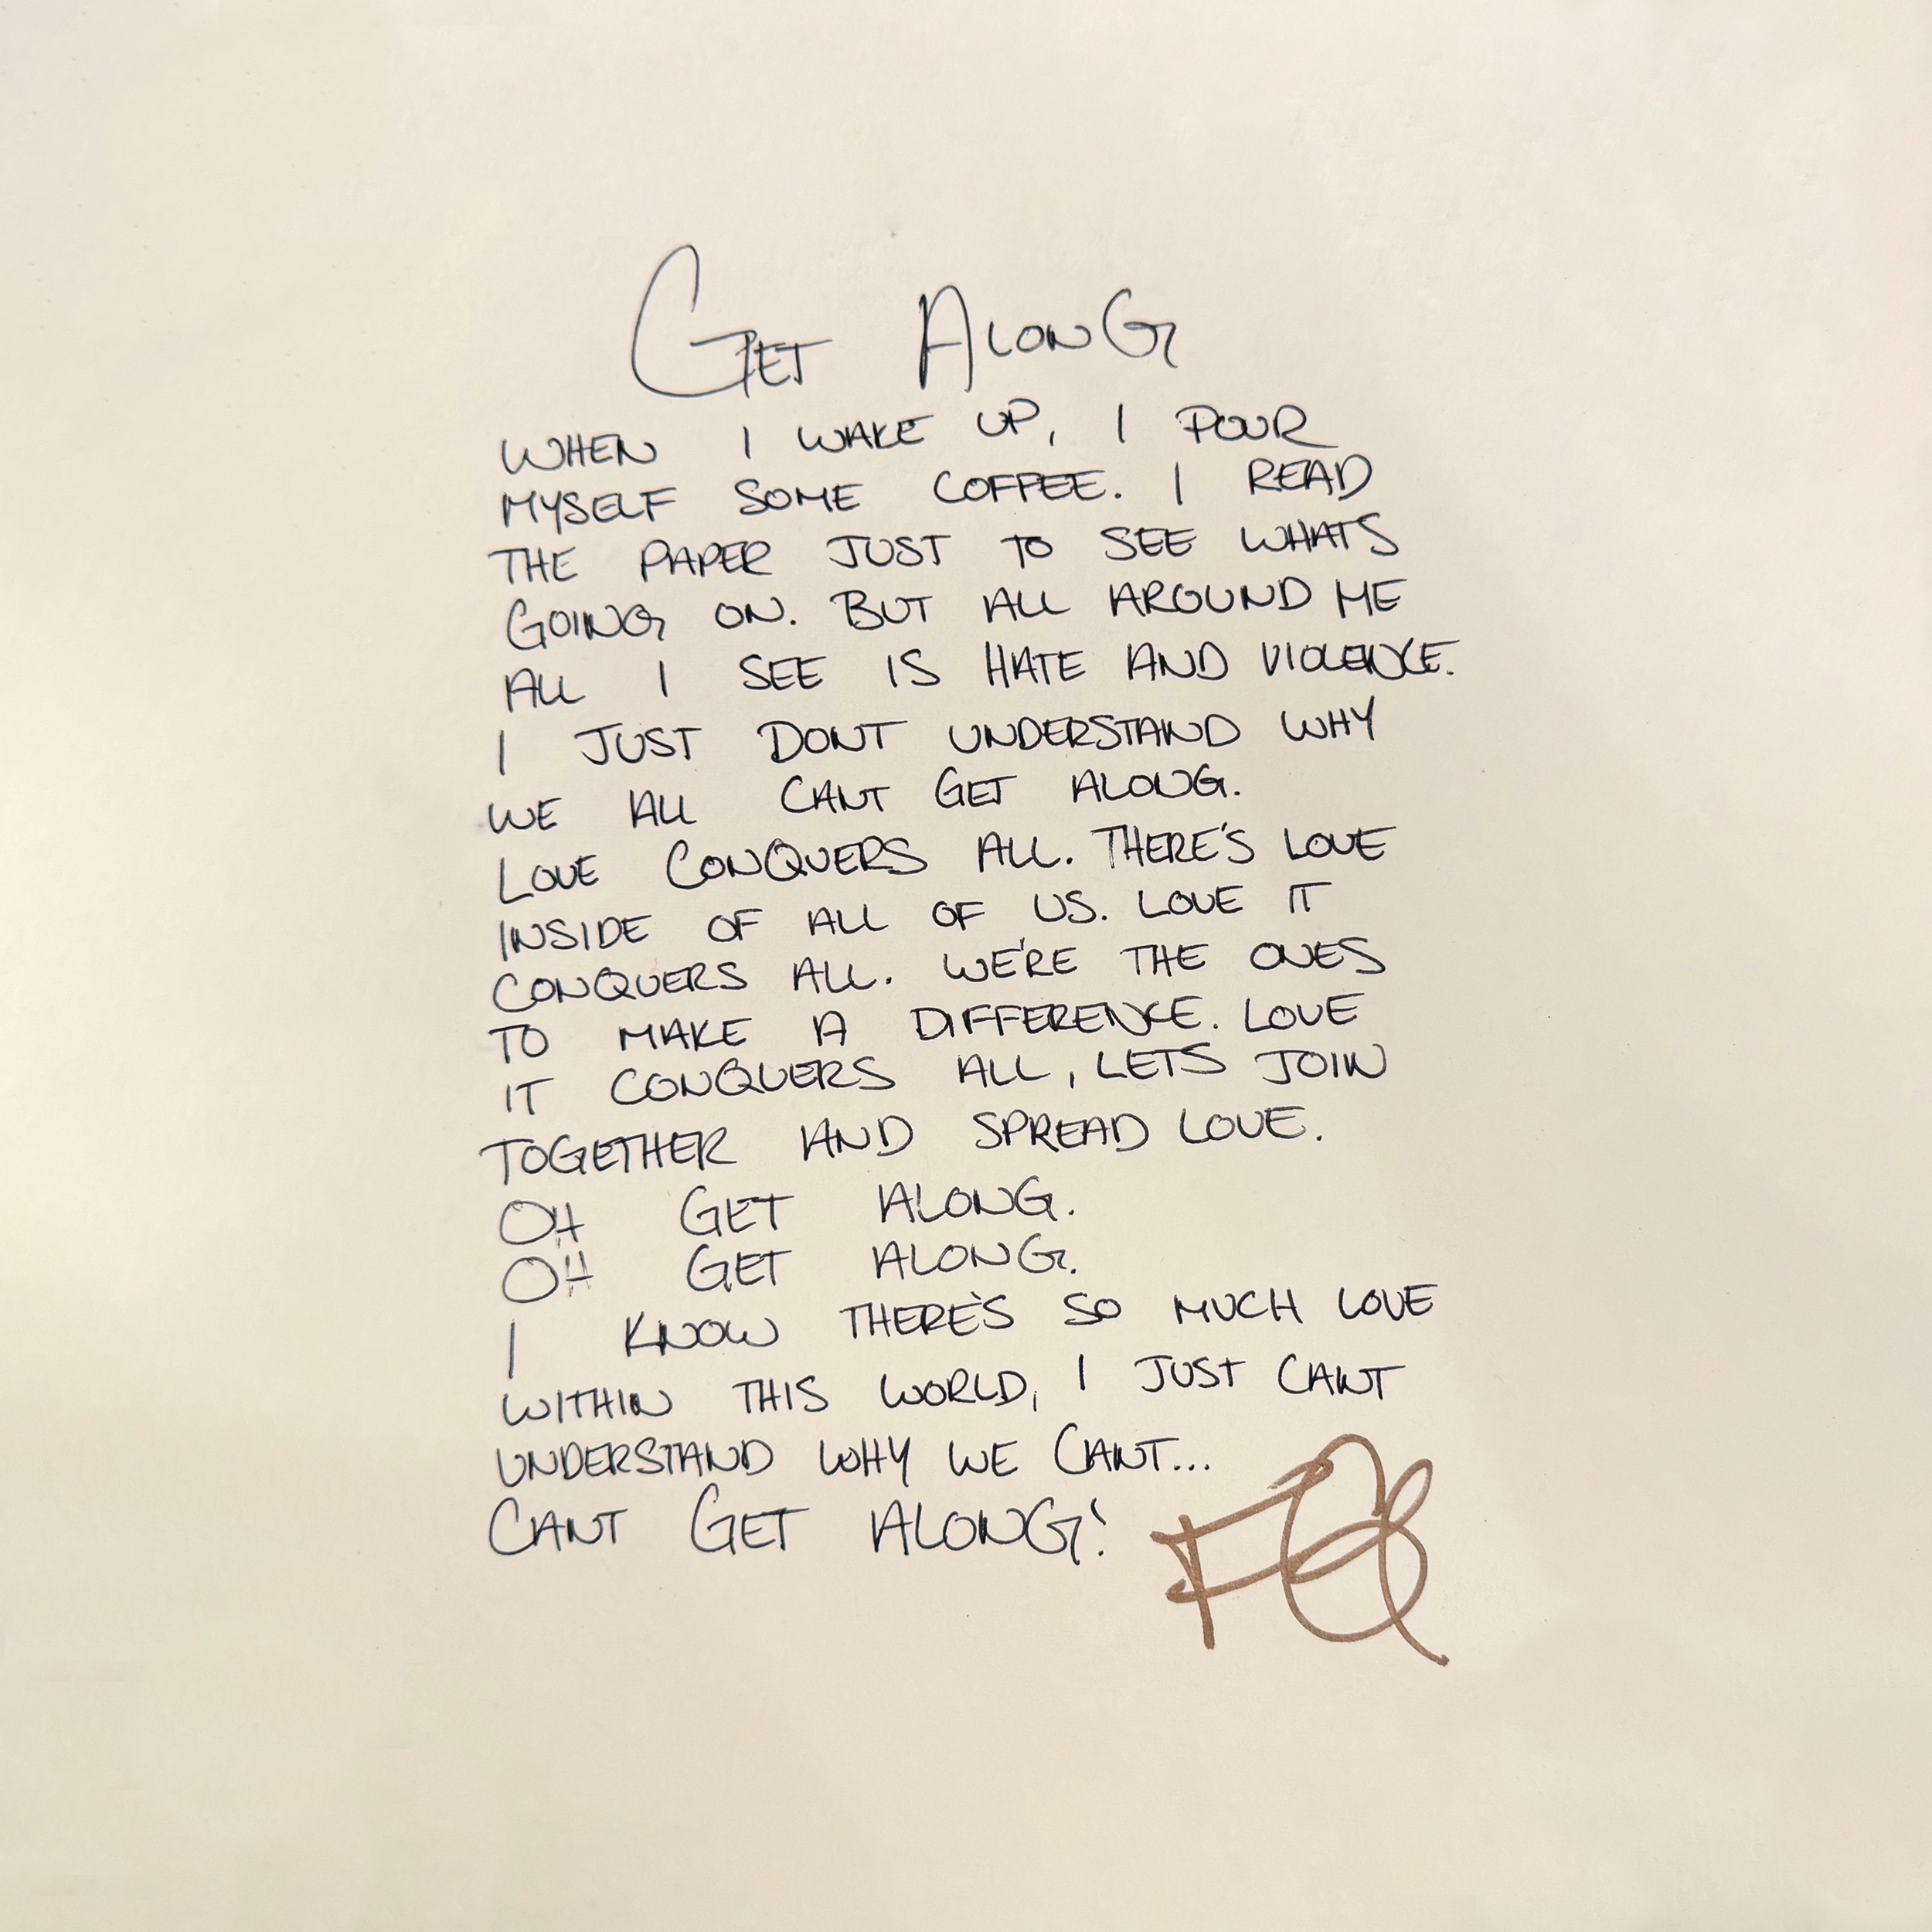 GET ALONG
WHEN I WAKE UP, I POUR
MYSELF SOME COFFEE. I READ
THE PAPER JUST TO SEE WHATS
GOING ON. BUT ALL AROUND ME
ALL I SEE IS HATE AND VIOLENCE.
I JUST DONT UNDERSTAND WHY
WE ALL CANT GET ALONG.
LOVE CONQUERS ALL. THERE'S LOVE
INSIDE OF ALL OF US. LOVE IT
CONQUERS ALL. WE'RE THE ONES
TO MAKE A DIFFERENCE. LOVE
IT CONQUERS ALL, LETS JOIN
TOGETHER AND SPREAD LOVE.
OH GET ALONG.
OH GET ALONG.
I KNOW THERE'S SO MUCH LOVE
WITHIN THIS WORLD, I JUST CANT
UNDERSTAND WHY WE CANT...
CANT GET ALONG!